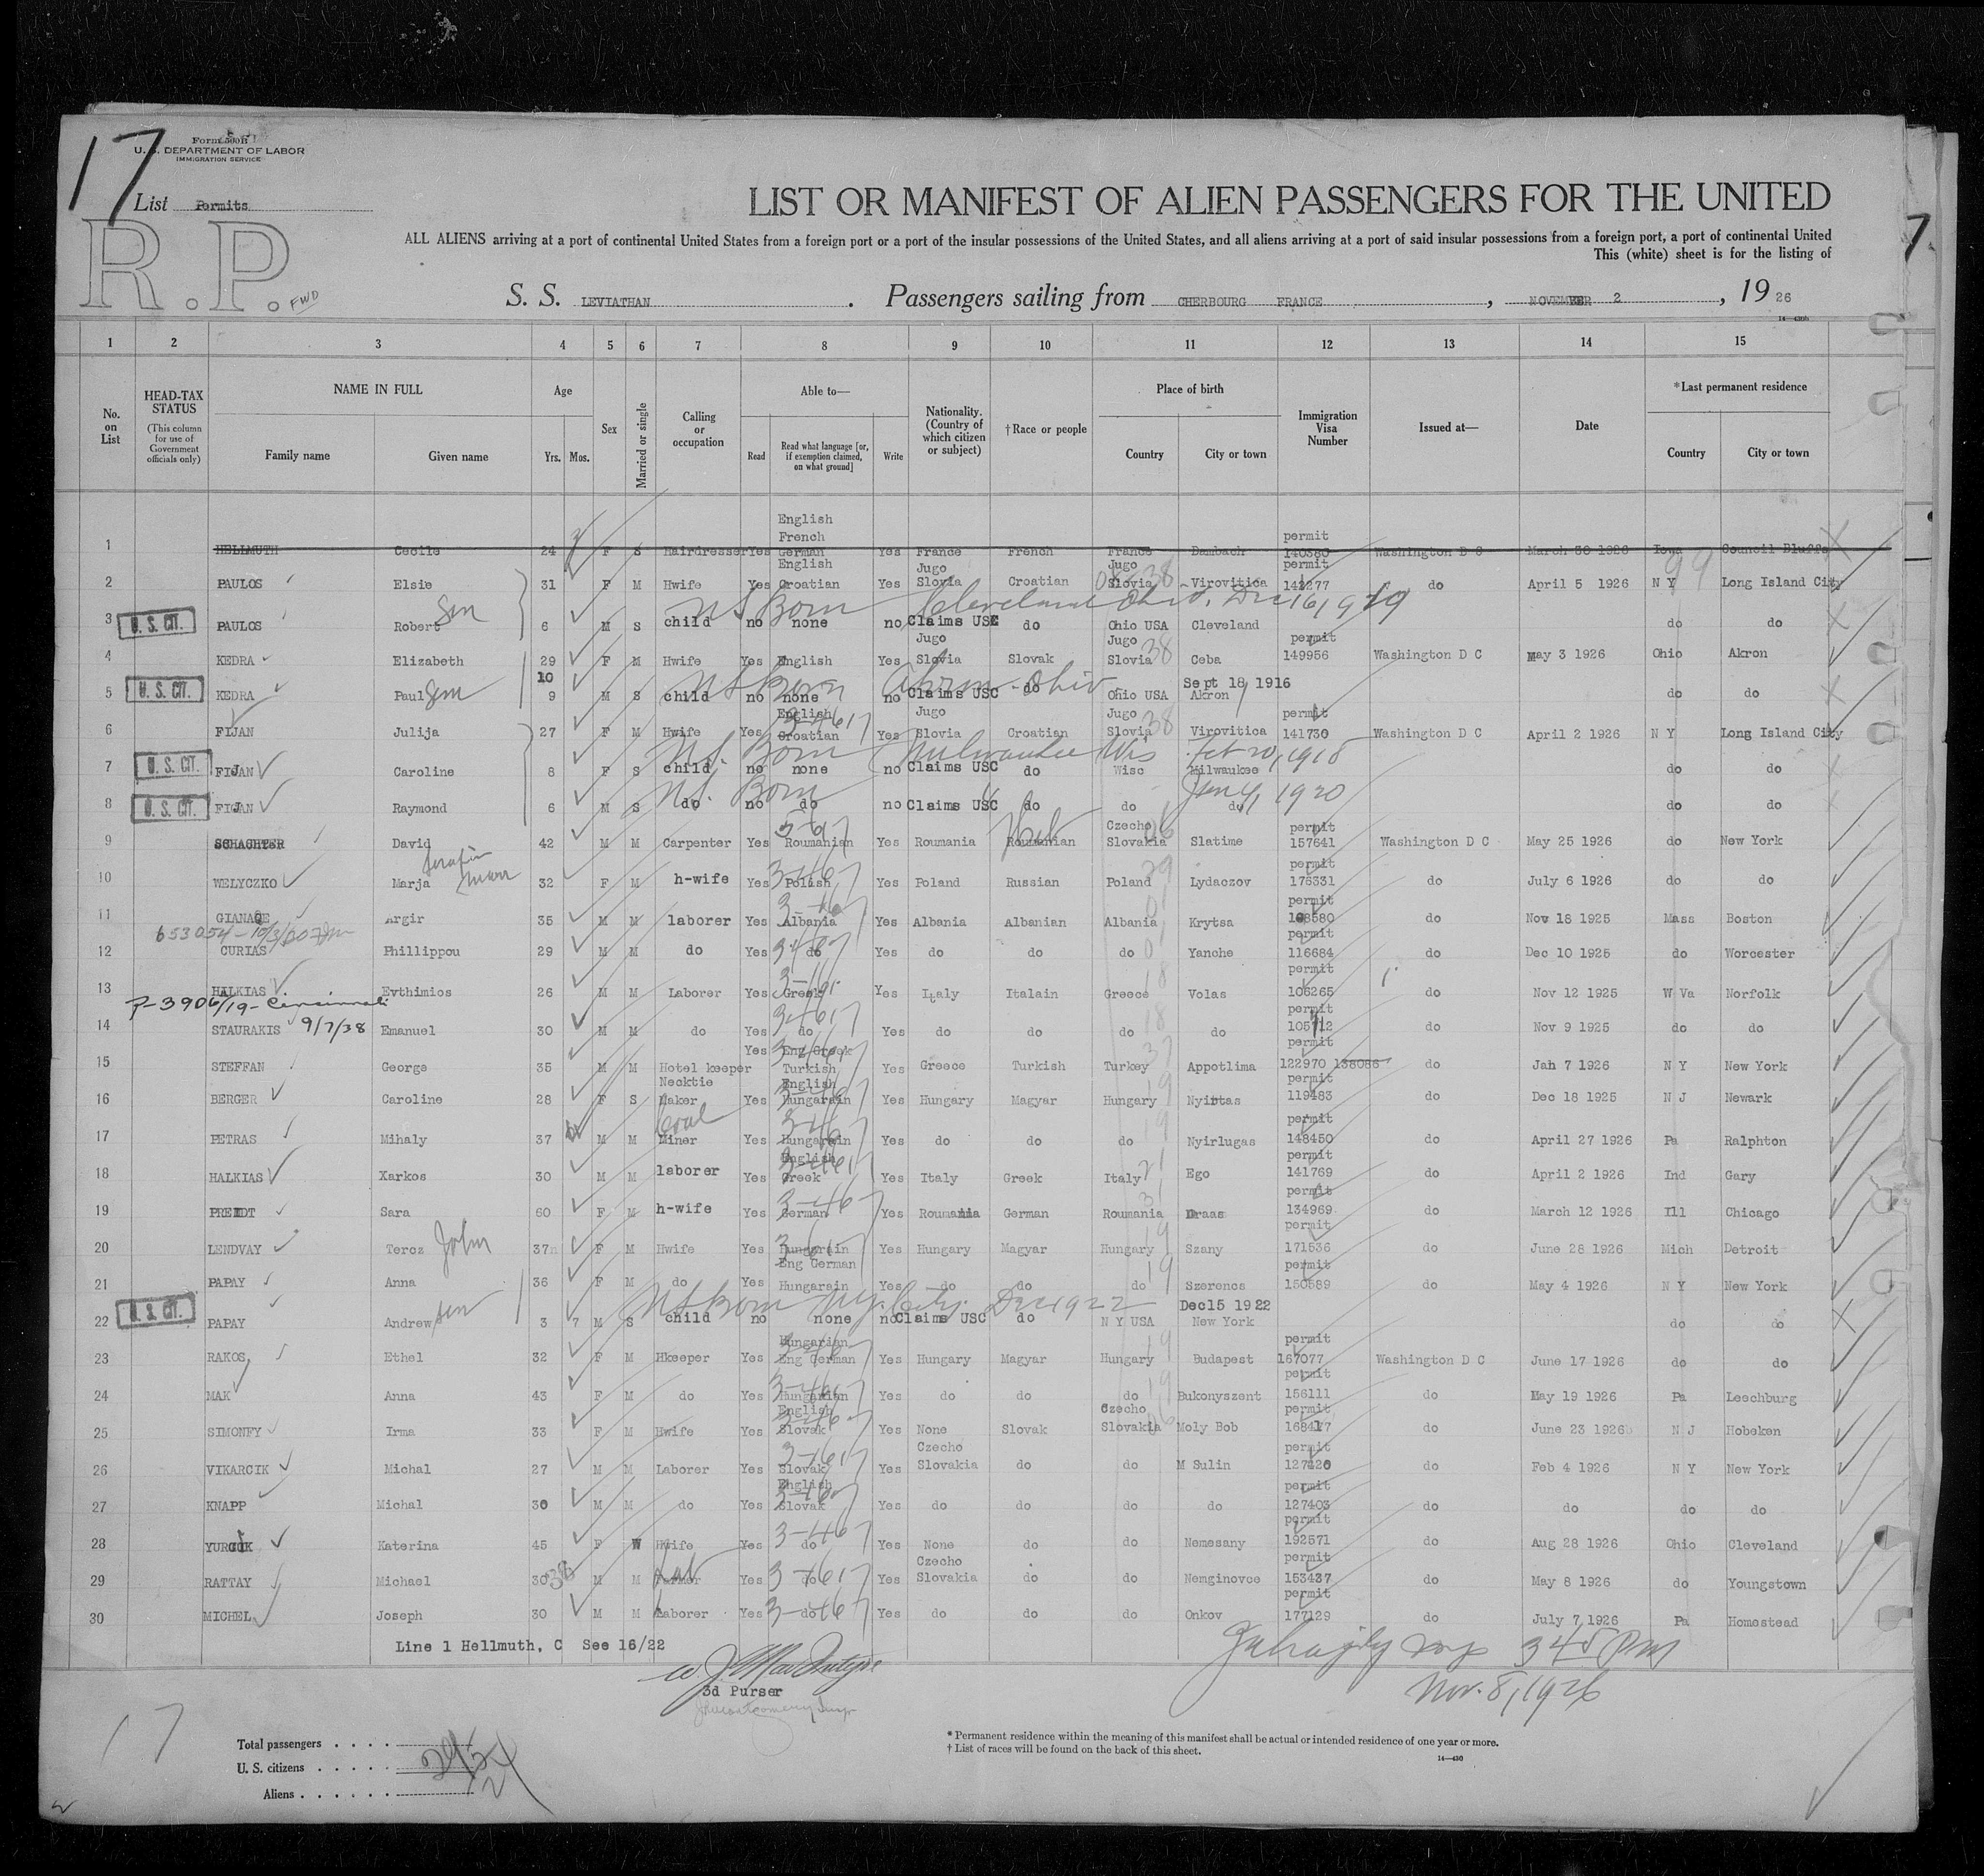 17
Form 500B
U. S. DEPARTMENT OF LABOR
IMMIGRATION SERVICE
List Permits
R.P. FWD
LIST OR MANIFEST OF ALIEN PASSENGERS FOR THE UNITED
ALL ALIENS arriving at a port of continental United States from a foreign port or a port of the insular possessions of the United States, and all aliens arriving at a port of said insular possessions from a foreign port, a port of continental United
This (white) sheet is for the listing of
7
S. S. LEVIATHAN . Passengers sailing from CHERBOURG FRANCE , NOVEMBER 2 , 19 26
1 2 3 4 5 6 7 8 9 10 11 12 13 14 15
No. on List
HEAD-TAX STATUS (This column for use of Government officials only)
NAME IN FULL Family name Given name
Age Yrs. Mos.
Sex
Married or single
Calling or occupation
Able to— Read Read what language [or, if exemption claimed, on what ground] Write
Nationality. (Country of which citizen or subject)
†Race or people
Place of birth Country City or town
Immigration Visa Number
Issued at—
Date
*Last permanent residence Country City or town
1 HELLMUTH Cecile 24 F S Hairdresser Yes English French German Yes France French France Dambach permit 140380 Washington D C March 30 1926 Iowa Council Bluffs
2 PAULOS Elsie 31 F M Hwife Yes English Croatian Yes Jugo Slovia Croatian Jugo Slovia 38 Virovitica permit 142277 do April 5 1926 N Y Long Island City
US Born Cleveland Ohio, Dec 16, 1919
3 U. S. CIT. PAULOS Robert Son 6 M S child no none no Claims USC do Ohio USA Cleveland do do
4 KEDRA Elizabeth 29 F M Hwife Yes English Yes Jugo Slovia Slovak Jugo Slovia 38 Ceba permit 149956 Washington D C May 3 1926 Ohio Akron
US Born Akron Ohio
5 U. S. CIT. KEDRA Paul Son 10 9 M S child no none no Claims USC do Ohio USA Akron Sept 18 1916 do do
6 FIJAN Julija 27 F M Hwife Yes English Croatian Yes Jugo Slovia Croatian Jugo Slovia 38 Virovitica permit 141730 Washington D C April 2 1926 N Y Long Island City
U.S. Born Milwaukee Wis Feb 20, 1918
7 U. S. CIT. FIJAN Caroline 8 F S child no none no Claims USC do Wisc Milwaukee do do
U.S. Born Jan 4, 1920
8 U. S. CIT. FIJAN Raymond 6 M S do no do no Claims USC do do do do do
9 SCHACHTER David 42 M M Carpenter Yes Roumanian Yes Roumania Roumanian Heb Czecho Slovakia Slatime permit 157641 Washington D C May 25 1926 do New York
10 WELYCZKO Marja 32 F M h-wife Yes Polish Yes Poland Russian Poland Lydaczov permit 175331 do July 6 1926 do do
11 GIANAQE Argir 35 M M laborer Yes Albania Yes Albania Albanian Albania Krytsa permit 108580 do Nov 18 1925 Mass Boston
12 CURIAS Phillippou 29 M M do Yes do Yes do do do Yanche permit 116684 do Dec 10 1925 do Worcester
13 HALKIAS Evthimios 26 M M Laborer Yes Greek Yes Italy Italain Greece 18 Volas permit 106265 do Nov 12 1925 W Va Norfolk
P-3906/19- Cincinnati 9/7/38
14 STAURAKIS Emanuel 30 M M do Yes do Yes do do do 18 do permit 105712 do Nov 9 1925 do do
15 STEFFAN George 35 M M Hotel keeper Yes Eng Greek Turkish Yes Greece Turkish Turkey 37 Appotlima permit 122970 138086 do Jan 7 1926 N Y New York
16 BERGER Caroline 28 F S Necktie Maker Yes English Hungarain Yes Hungary Magyar Hungary 19 Nyirtas permit 119483 do Dec 18 1925 N J Newark
17 PETRAS Mihaly 37 M M Coal Miner Yes Hungarain Yes do do do 19 Nyirlugas permit 148450 do April 27 1926 Pa Ralphton
18 HALKIAS Xarkos 30 M M laborer Yes English Greek Yes Italy Greek Italy 21 Ego permit 141769 do April 2 1926 Ind Gary
19 PREIDT Sara 60 F M h-wife Yes German Yes Roumania German Roumania 31 Draas permit 134969 do March 12 1926 Ill Chicago
20 LENDVAY Tercz John 37 F M Hwife Yes Hungarain Yes Hungary Magyar Hungary 19 Szany permit 171536 do June 28 1926 Mich Detroit
21 PAPAY Anna 36 F M do Yes Eng German Hungarain Yes do do do 19 Szerencs permit 150589 do May 4 1926 N Y New York
US Born NY. City Dec 1922
22 U. S. CIT. PAPAY Andrew son 3 7 M S child no none no Claims USC do N Y USA Dec15 1922 New York do do
23 RAKOS Ethel 32 F M Hkeeper Yes Hungarian Eng German Yes Hungary Magyar Hungary 19 Budapest permit 167077 Washington D C June 17 1926 do do
24 MAK Anna 43 F M do Yes Hungarian Yes do do do 19 Bukonyszent permit 156111 do May 19 1926 Pa Leechburg
25 SIMONFY Irma 33 F M Hwife Yes English Slovak Yes None Slovak Czecho Slovakia Moly Bob permit 168477 do June 23 1926 N J Hoboken
26 VIKARCIK Michal 27 M M Laborer Yes Slovak Yes Czecho Slovakia do do M Sulin permit 127420 do Feb 4 1926 N Y New York
27 KNAPP Michal 30 M M do Yes English Slovak Yes do do do do permit 127403 do do do do
28 YURCIK Katerina 45 F W Hwife Yes do Yes None do do Nemesany permit 192571 do Aug 28 1926 Ohio Cleveland
29 RATTAY Michael 30 38 M M Farmer Lab Yes do Yes Czecho Slovakia do do Nemginovce permit 153437 do May 8 1926 do Youngstown
30 MICHEL Joseph 30 M M Laborer Yes do Yes do do do Onkov permit 177129 do July 7 1926 Pa Homestead
Line 1 Hellmuth, C See 16/22
3 45 PM
Nov. 8, 1926
3d Purser
17
Total passengers
U. S. citizens
Aliens
* Permanent residence within the meaning of this manifest shall be actual or intended residence of one year or more.
† List of races will be found on the back of this sheet.
14—430